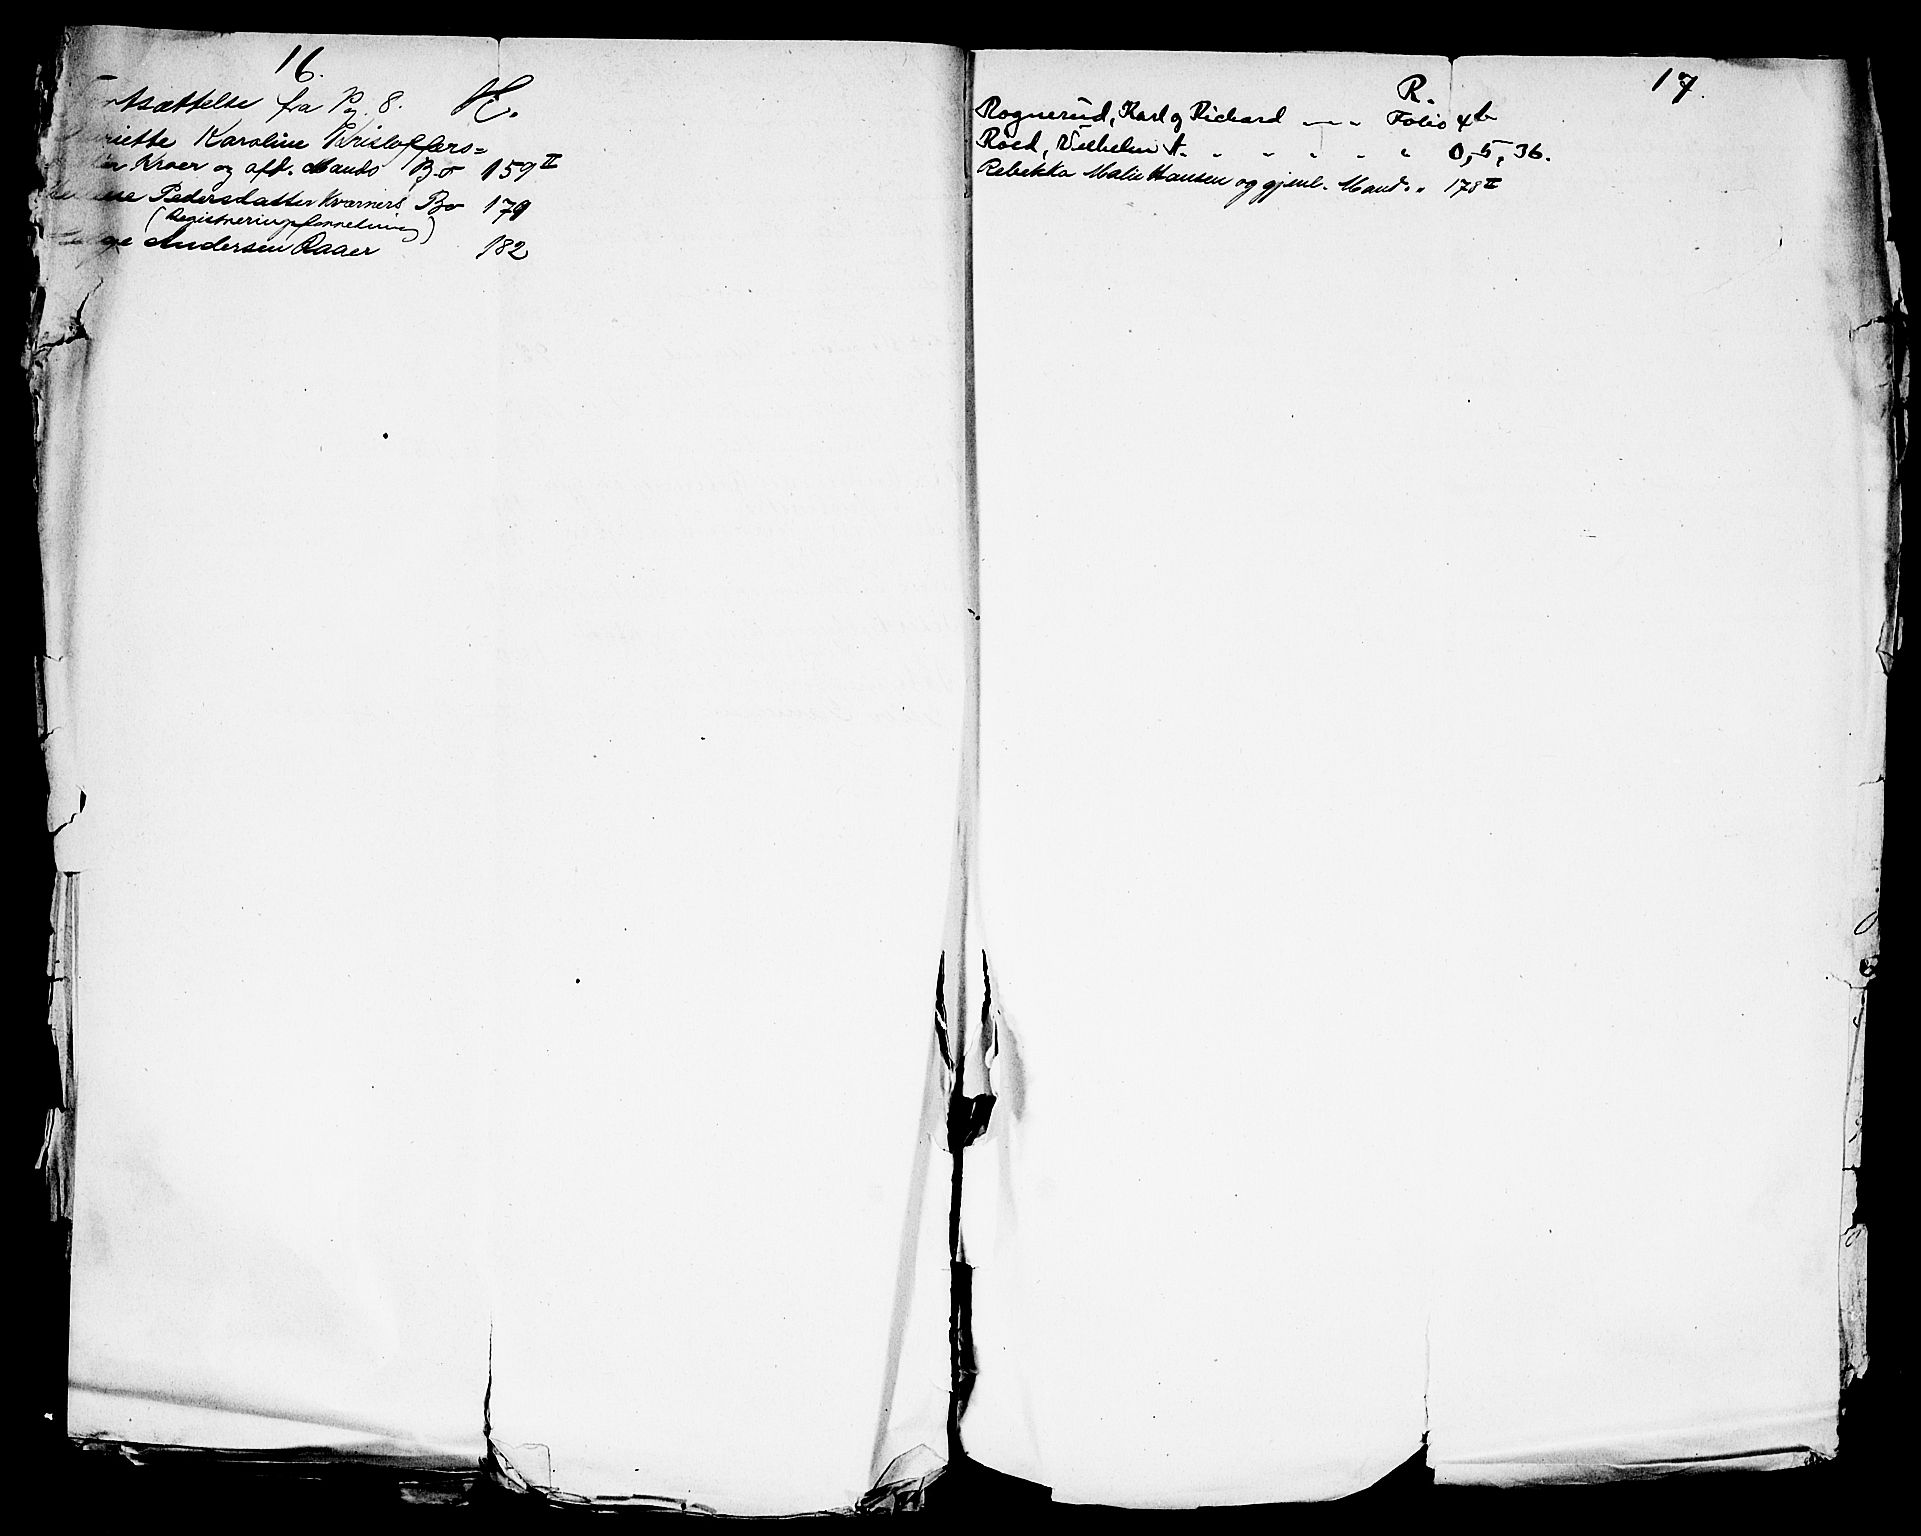 16.
Fortsættelse fra Pg. 8. H.
Henriette Karoline Kristoffers=
Kroer og afd. Mands Bo 159 II
Pedersdatter Kværners Bo 179
(Registreringsforretning)
Helge Andersen Raaer 182
17.
R.
Rognerud, Karl og Richard — " Folio 4b
Roed, Vilhelm A. " " " " " 0, 5, 36.
Rebekka Malie Hansen og gjenl. Mand " 178 II